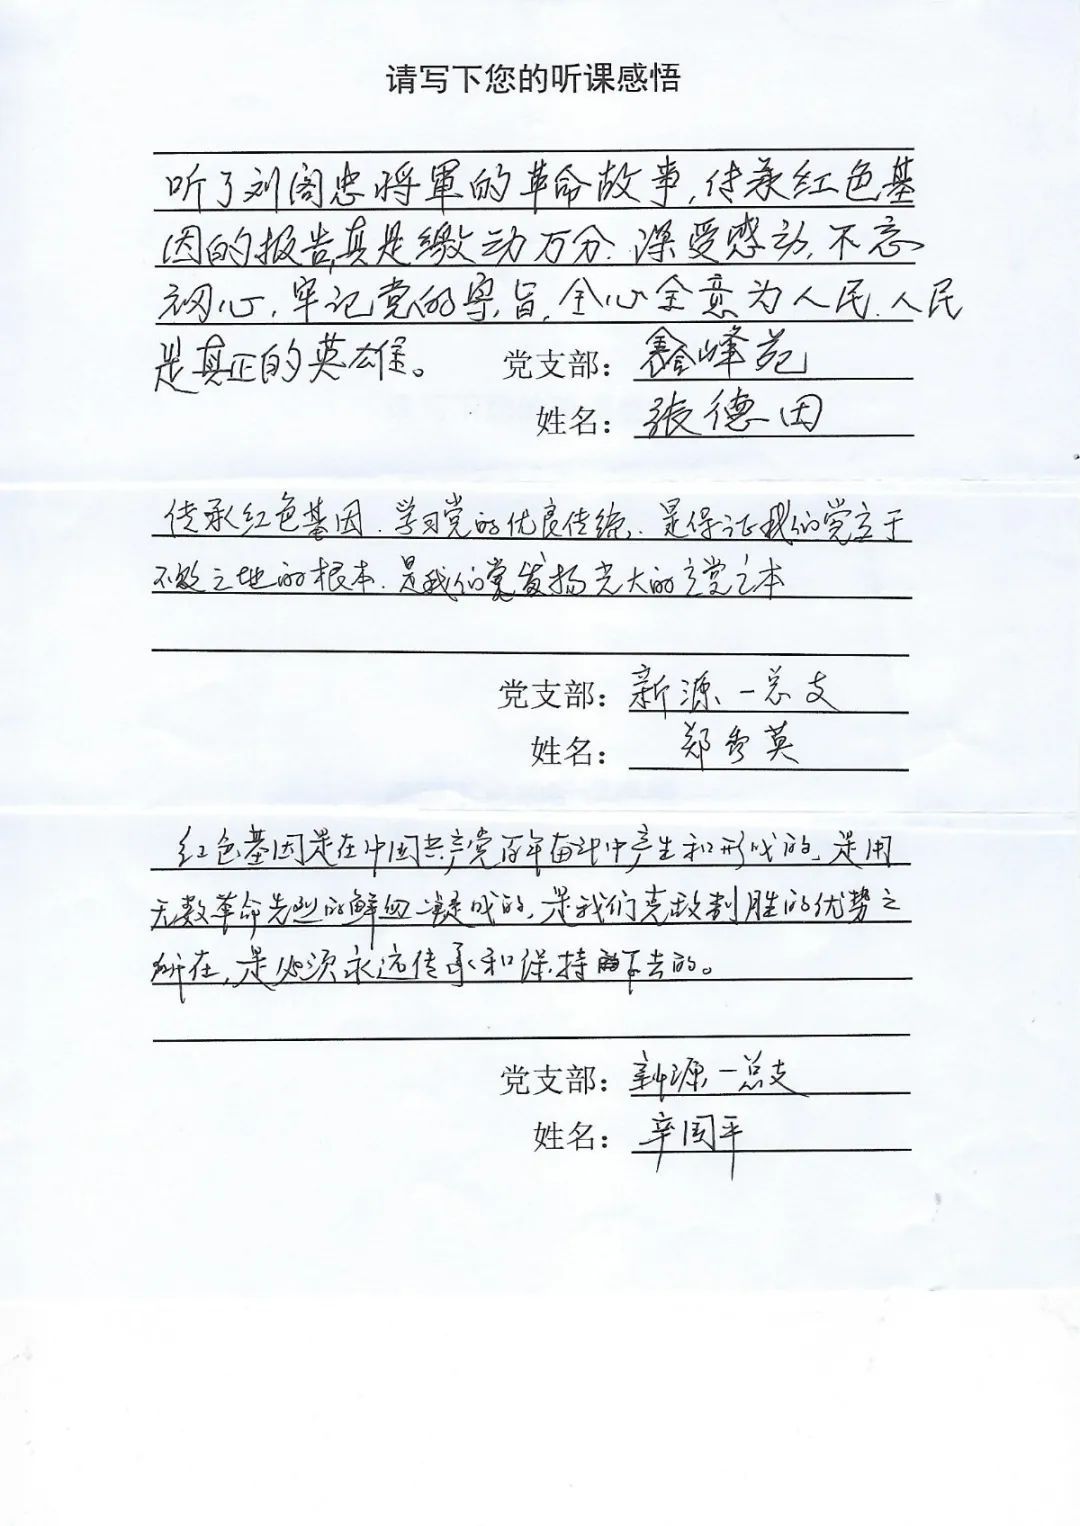 请写下您的听课感悟
听了刘阁忠将軍的革命故事,传承红色基
因的报告,真是激动万分.深受感动,不忘
初心,牢记党的宗旨,全心全意为人民.人民
是真正的英雄。 党支部：鑫峰苑
姓名：张德因
传承红色基因.学习党的优良传统,是保证我们党立于
不败之地的根本.是我们党发扬光大的立党之本
党支部：新源一总支
姓名：郑秀英
红色基因是在中国共产党百年奋斗中产生和形成的,是用
无数革命先烈的鲜血凝成的,是我们克敌制胜的优势之
所在,是必须永远传承和保持下去的。
党支部：新源一总支
姓名：辛国平